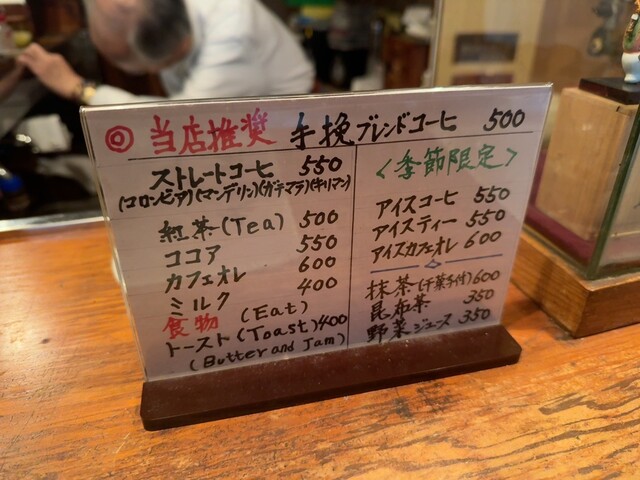 ◎ 当店推奨 手挽ブレンドコーヒ 500
ストレートコーヒ 550
(コロンビア)(マンデリン)(ガテマラ)(キリマン)
紅茶(Tea) 500
ココア 550
カフェオレ 600
ミルク 400
食物 (Eat)
トースト(Toast)400
(Butter and Jam)
<季節限定>
アイスコーヒ 550
アイスティー 550
アイスカフェオレ 600
抹茶(干菓子付)600
昆布茶 350
野菜ジュース 350